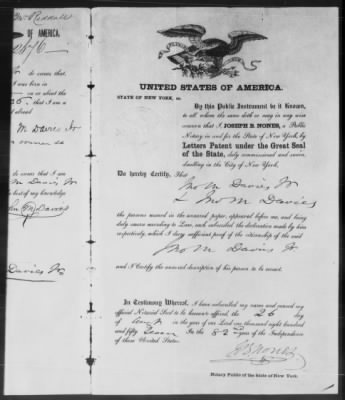 OF AMERICA.
2676
to swear that
I was born in
on or about the
that I am a
M Davies Jr
to swear that I am
best of my knowledge
Davies Jr
UNITED STATES OF AMERICA.
STATE OF NEW YORK, ss.
By this Public Instrument be it Known,
to all whom the same doth or may in any wise
concern that I, JOSEPH B. NONES, a Public
Notary in and for the State of New York, by
Letters Patent under the Great Seal
of the State, duly commissioned and sworn,
dwelling in the City of New York,
Do hereby Certify, That
Jno M Davies Jr
& Jno M Davies
the persons named in the annexed paper, appeared before me, and being
duly sworn according to Law, each subscribed the declaration made by him
respectively, which I deem sufficient proof of the citizenship of the said
Jno M Davies Jr
and I Certify the annexed description of his person to be correct.
In Testimony Whereof, I have subscribed my name and caused my
official Notarial Seal to be hereunto affixed, the 26 day
of in the year of our Lord one thousand eight hundred
and fifty Seven In the 82 year of the Independence
of these United States.
J B Nones
Notary Public of the State of New York.